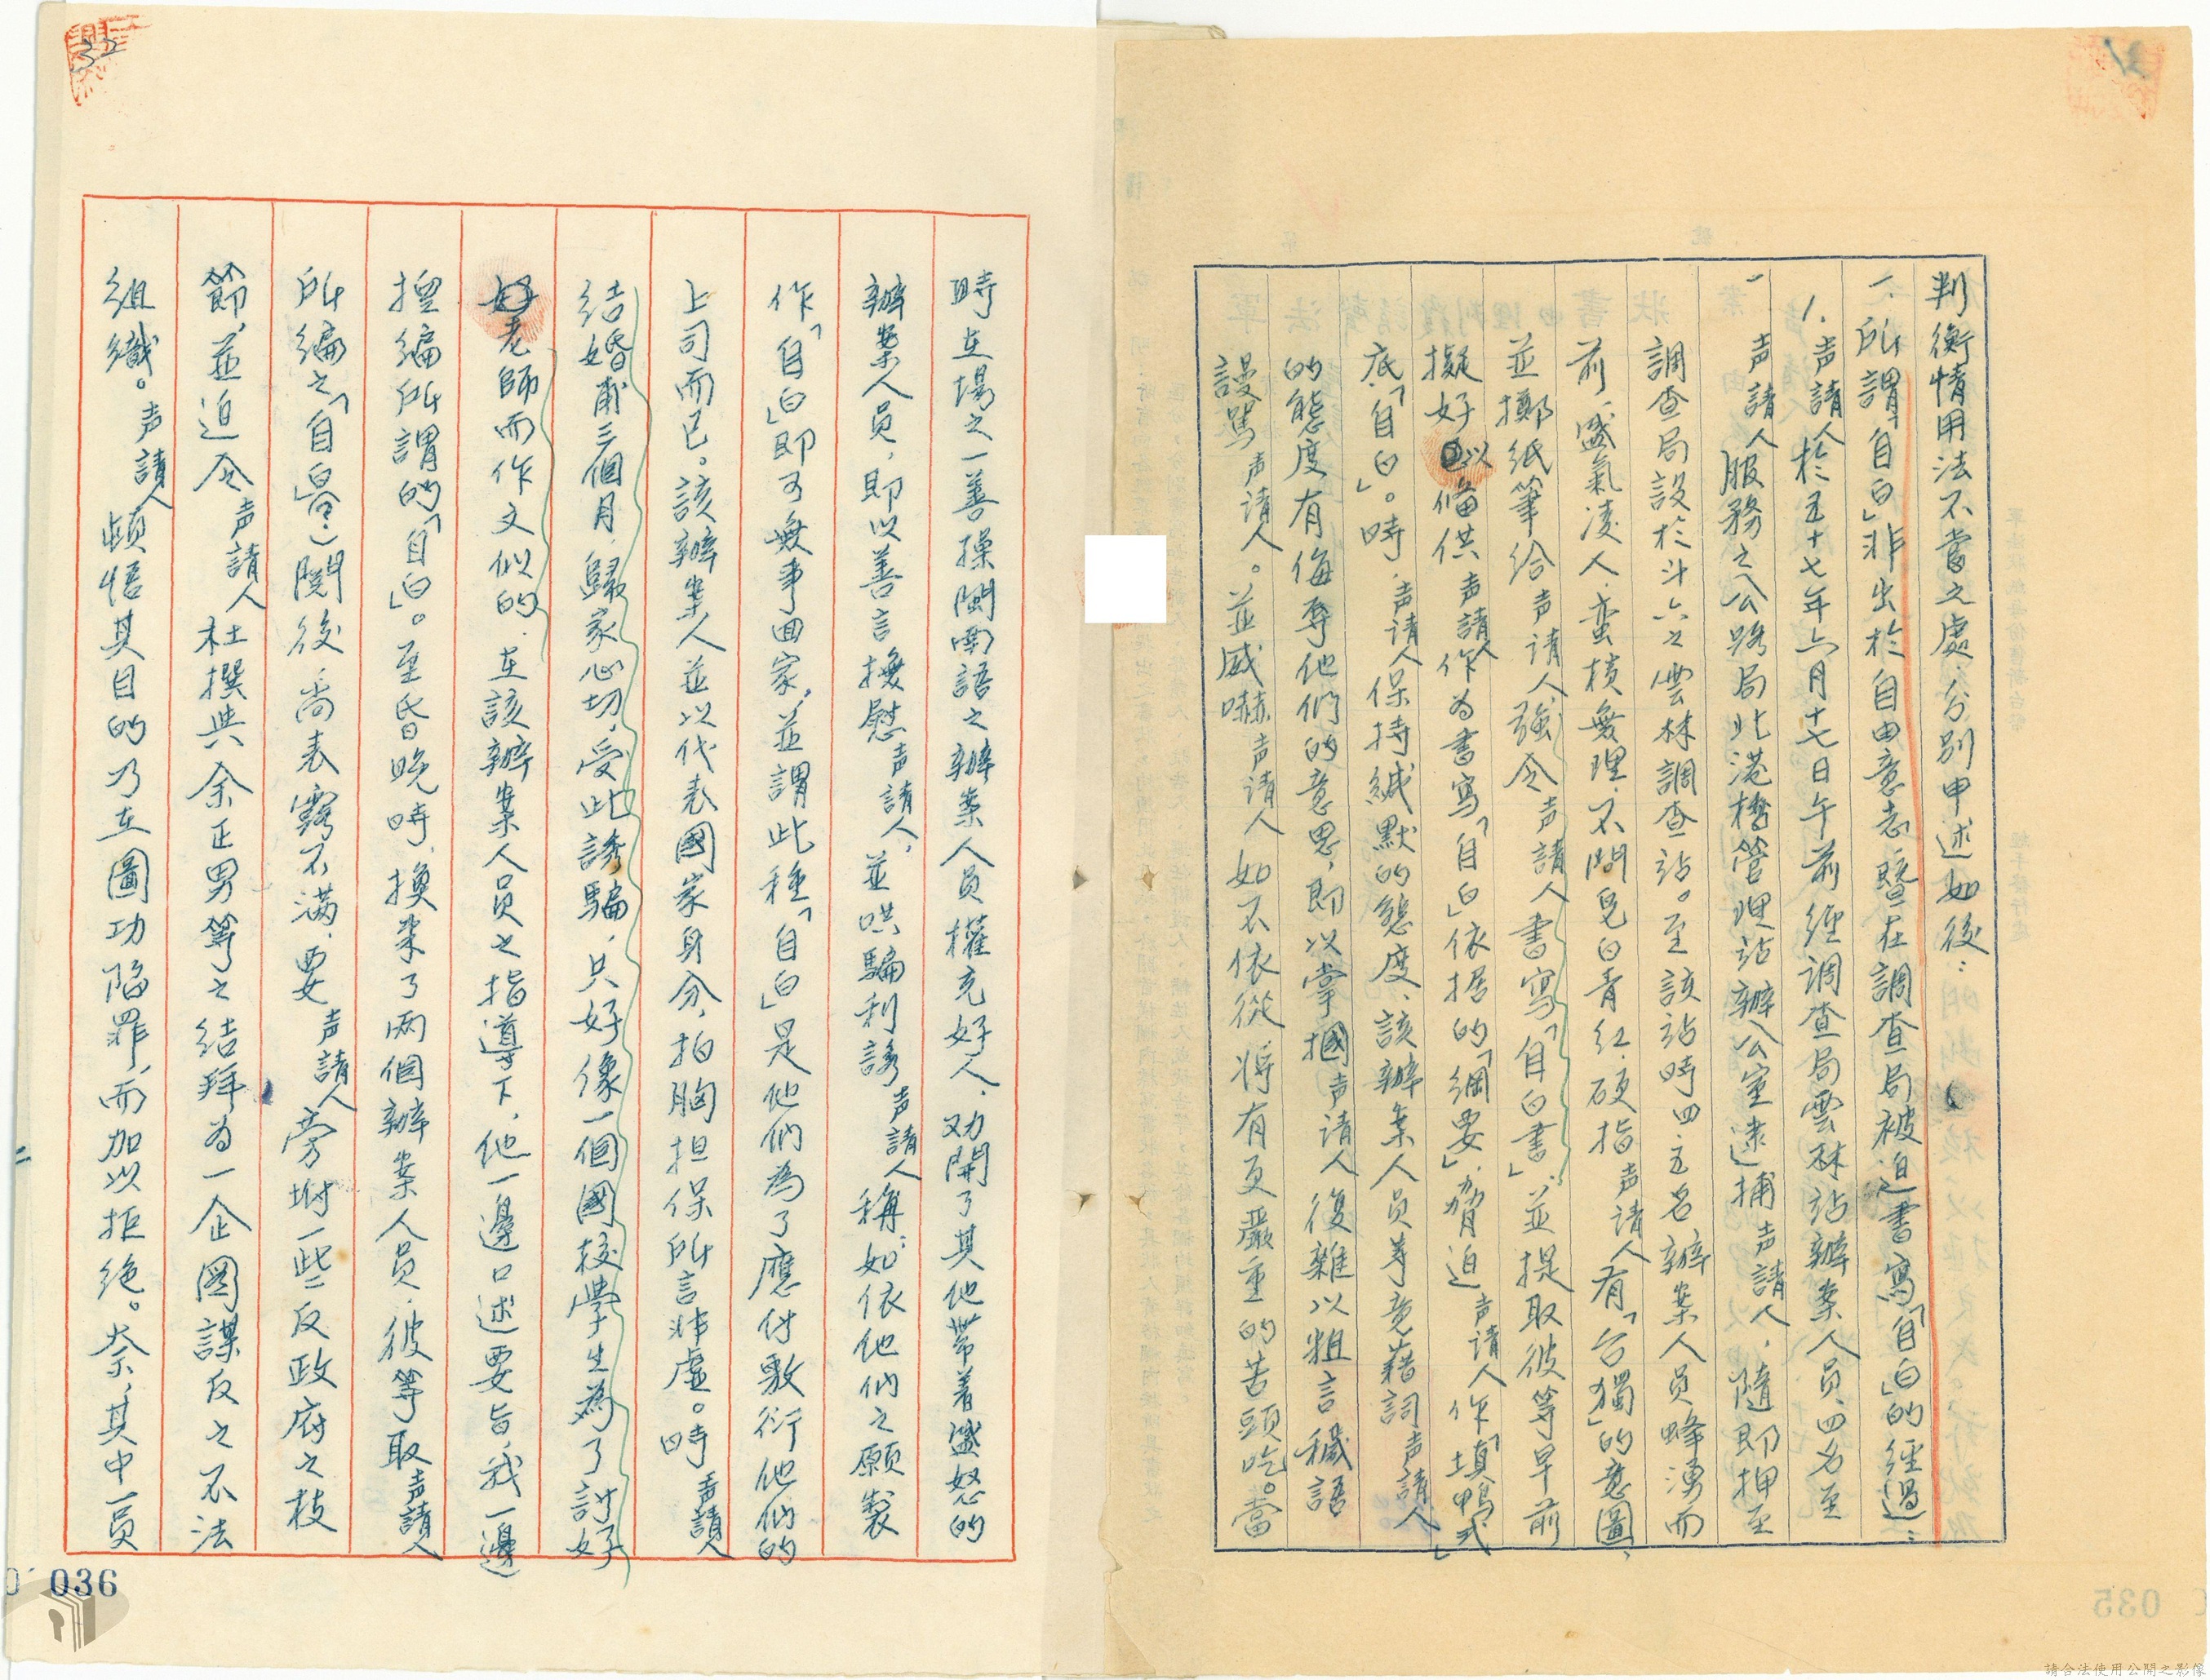 判衡情用法不當之處，分別申述如後：
一、所謂「自白」非出於自由意志，暨在調查局被迫書寫「自白」的經過：
1.声請人於五十七年六月十七日午前經調查局雲林站辦案人員四名至
声請人服務之公路局北港橋管理站辦公室逮捕声請人，隨即押至
調查局設於斗六之雲林調查站。至該站時四五名辦案人員蜂湧而
前，盛氣凌人，蛮橫無理，不問皂白青红，硬指声请人有「台獨」的意圖，
並擲紙筆給声请人，強令声請人書寫「自白書」，並提取彼等早前
擬好以俻供声請人作為書寫「自白」依据的「綱要」，脅迫声请人作「填鴨式」
底「自白」。時，声请人保持緘默的態度，該辦案人員等竟藉詞声請人
的態度有侮辱他們的意思，即以掌摑声请人復雜以粗言穢語
謾駡声请人。並威嚇声请人如不依從，將有更嚴重的苦頭吃。當
時在場之一善操閩南語之辦案人員權充好人，劝開了其他帶着盛怒的
辦案人員，即以善言撫慰声請人，並哄騙利誘声請人稱：如依他們之願製
作「自白」即可無事回家，並謂此種「自白」是他們為了應付敷衍他們的
上司而已。該辦案人並以代表國家身分，拍胸担保所言非虛。時声請人
结婚甫三個月，歸家心切，受此誘騙，只好像一個國校學生為了討好
老師而作文似的，在該辦案人員之指導下，他一邊口述要旨，我一邊
捏編所謂的「自白」。至昏晚時，換來了兩個辦案人員，彼等取声請人
所編之「自白書」閱後，尚表露不满，要声請人旁坿一些反政府之枝
節，並迫令声請人杜撰與余正男等之结拜為一企圖謀反之不法
组織。声請人頓悟其目的乃在圖功陷罪，而加以拒绝。奈，其中一員
32
036
035
請合法使用公開之影像